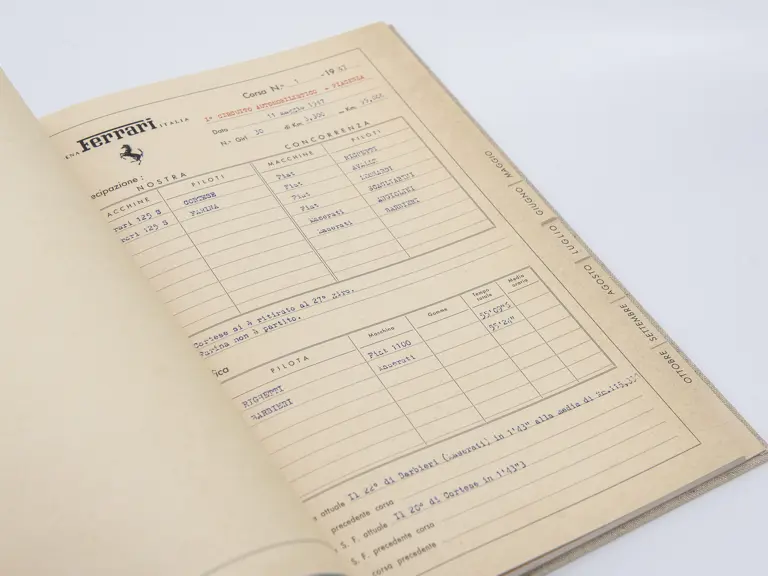 Corsa N.° 1 -1947
Ferrari ITALIA
1° CIRCUITO AUTOMOBILISTICO - PIACENZA
Data 11 maggio 1947
N.° Giri 30 di Km 3,300 = Km 99,000
ecipazione :
NOSTRA CONCORRENZA
ACCHINE PILOTI MACCHINE PILOTI
rari 125 S CORTESE Fiat RIGHETTI
rari 125 S FARINA Fiat AVALLE
Fiat LOMBARDI
Fiat SCAGLIARINI
Maserati ANGIOLINI
Maserati BARBIERI
Cortese si è ritirato al 27° giro.
Farina non è partito.
ica
PILOTA Macchina Gomme Tempo totale Media oraria
RIGHETTI Fiat 1100 55'09"5
BARBIERI Maserati 55'24"
attuale Il 22° di Barbieri (Maserati) in 1'43" alla media di Km.115,
precedente corsa
S. F. attuale Il 20° di Cortese in 1'43"3
S. F. precedente corsa
corsa precedente
MAGGIO
GIUGNO
LUGLIO
AGOSTO
SETTEMBRE
OTTOBRE